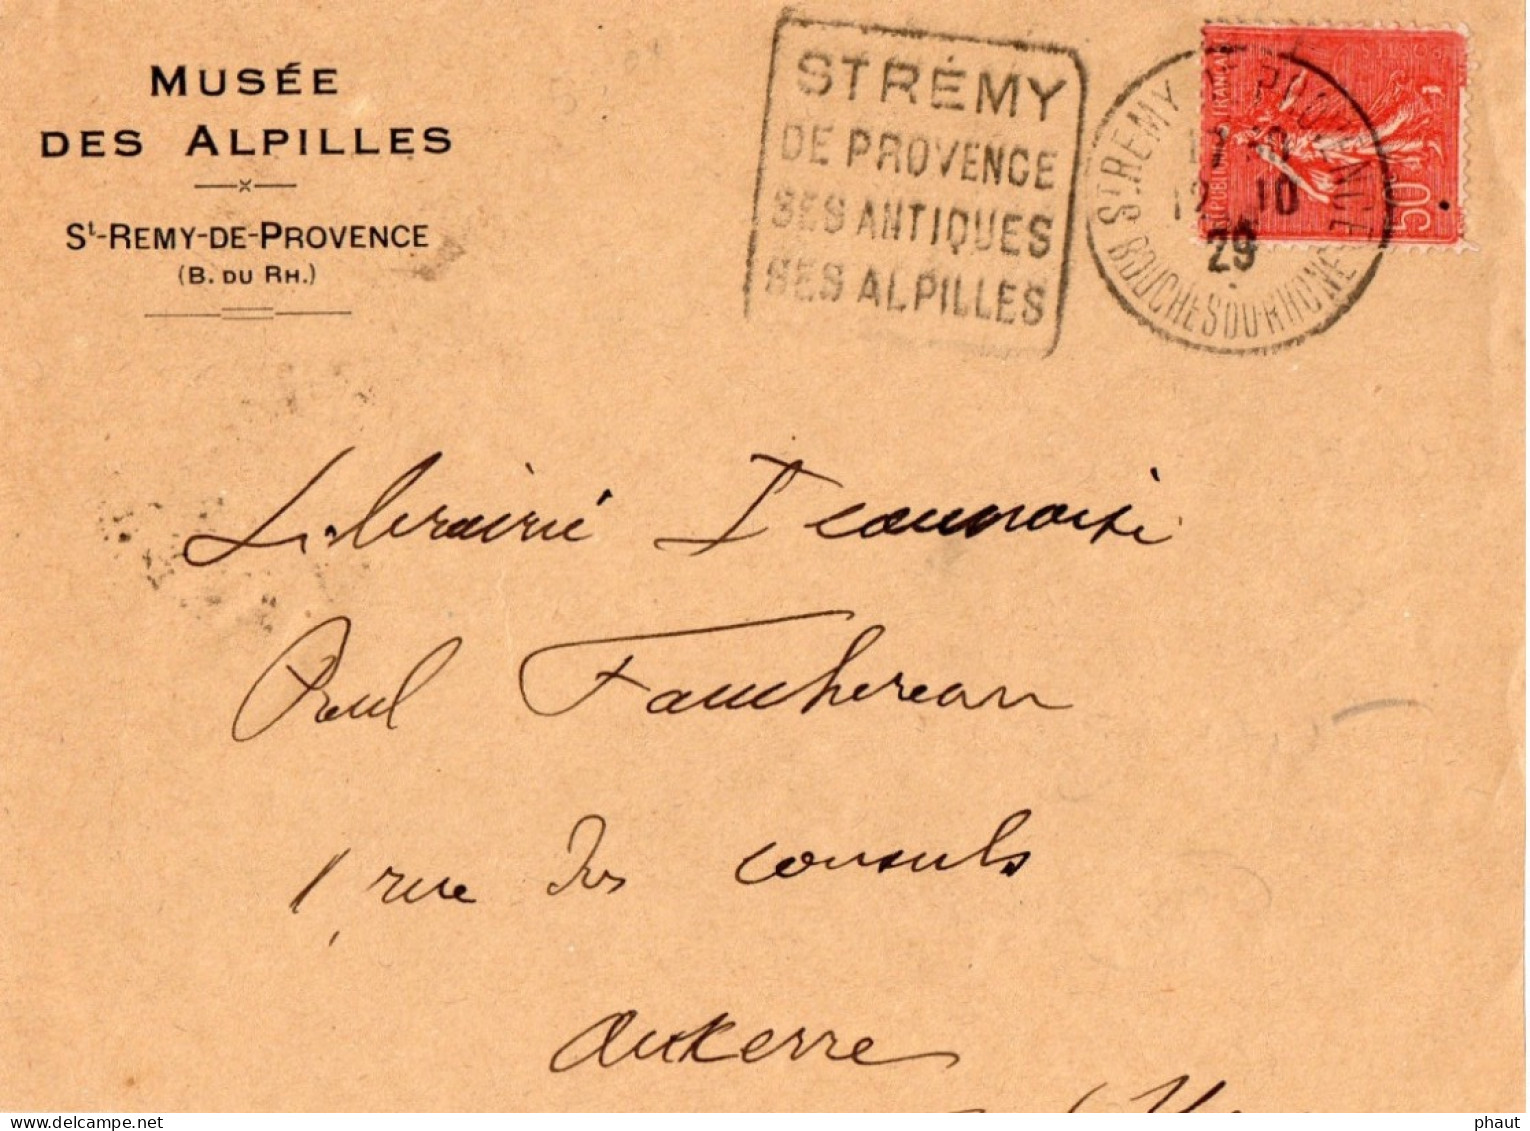 MUSÉE
DES ALPILLES
St-REMY-DE-PROVENCE
(B. DU RH.)
ST RÉMY
DE PROVENCE
SES ANTIQUES
SES ALPILLES
ST REMY DE PROVENCE
12 10
29
BOUCHES DU RHONE
REPUBLIQUE FRANÇAISE
POSTES
50
Librairie Icaunaise
Paul Fauchereau
1 rue des Consuls
Auxerre
phaut